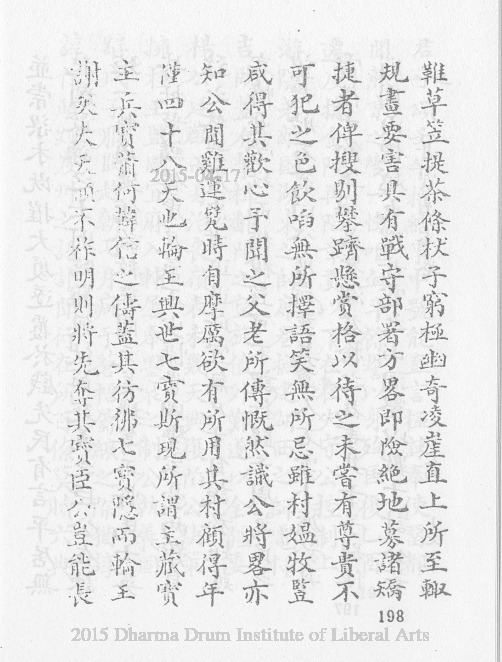 鞋草笠提茶條杖子窮極幽奇凌崖直上所至輙
規畫要害具有戰守部署方畧即險絕地募諸矯
捷者傅搜剔攀躋懸賞格以待之未嘗有尊貴不
可犯之色飲啗無所擇語笑無所忌雖村媼牧豎
咸得其歡心予聞之父老所傳慨然識公將畧亦
知公聞雞運甓時自摩厲欲有所用其材顧得年
僅四十八天此輪王興世七寶斯現所謂主藏寶
主兵寶蕭何韓信之儔葢其彷彿七寶隱而輪王
謝矣夫天傾不祚明則將先奪其寶臣公豈能長
198
2015-04-17
2015 Dharma Drum Institute of Liberal Arts